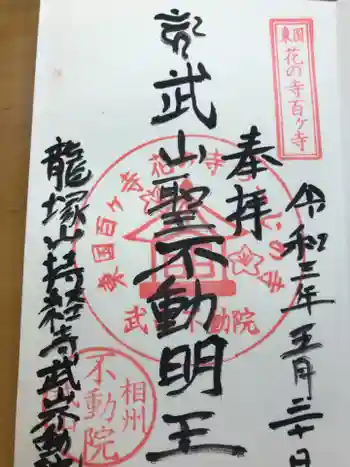 東国花の寺百ヶ寺
奉拝
令和三年五月三十日
武山聖不動明王
龍塚山持経寺武山不動院
東国百ヶ寺
花の寺
武 不動院
相州
不動院